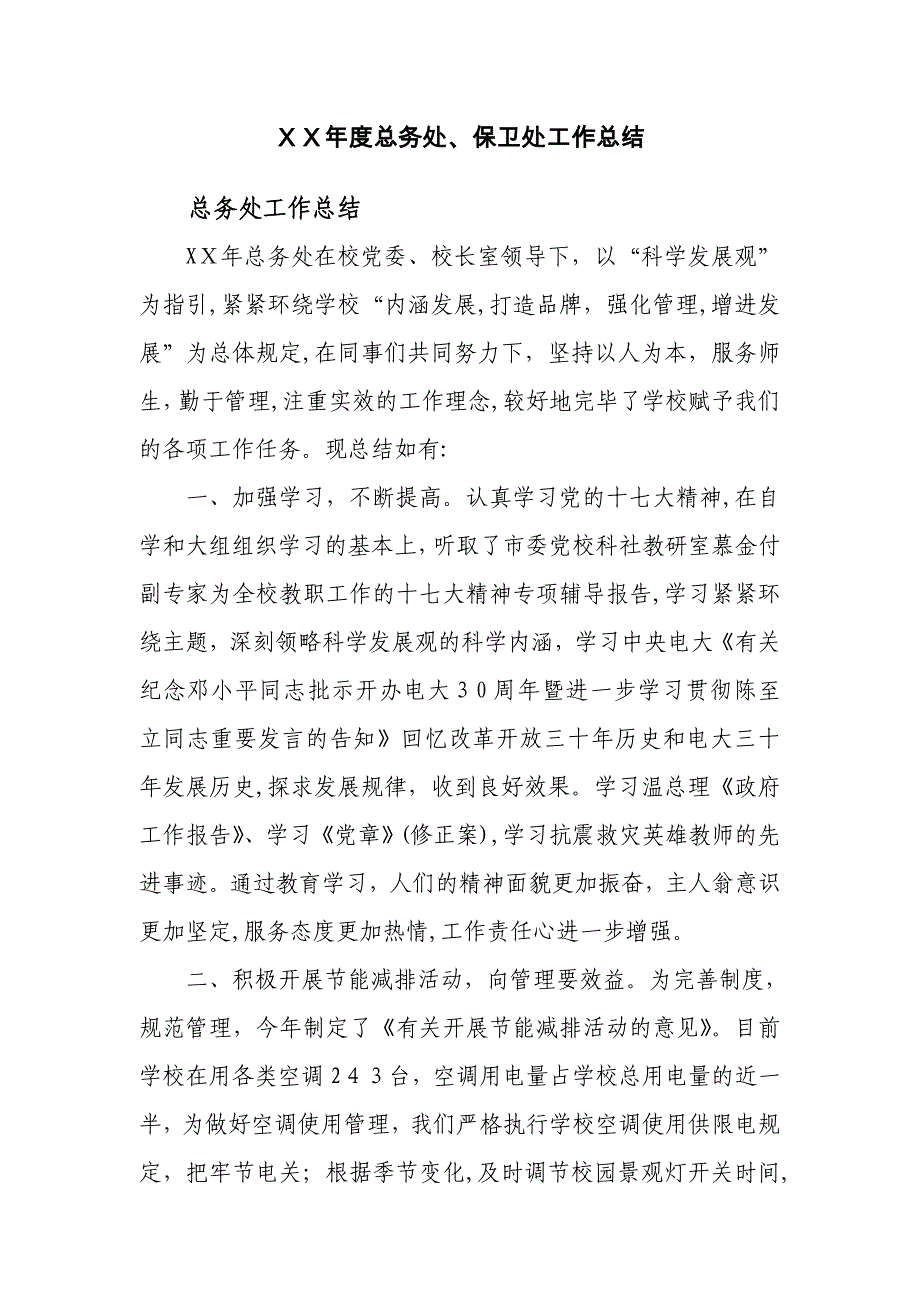 ＸＸ年度总务处、保卫处工作总结
总务处工作总结
XＸ年总务处在校党委、校长室领导下，以“科学发展观”
为指引,紧紧环绕学校“内涵发展,打造品牌，强化管理,增进发
展”为总体规定,在同事们共同努力下，坚持以人为本，服务师
生，勤于管理,注重实效的工作理念,较好地完毕了学校赋予我们
的各项工作任务。现总结如有:
一、加强学习，不断提高。认真学习党的十七大精神,在自
学和大组组织学习的基本上，听取了市委党校科社教研室慕金付
副专家为全校教职工作的十七大精神专项辅导报告,学习紧紧环
绕主题，深刻领略科学发展观的科学内涵，学习中央电大《有关
纪念邓小平同志批示开办电大３０周年暨进一步学习贯彻陈至
立同志重要发言的告知》回忆改革开放三十年历史和电大三十
年发展历史,探求发展规律，收到良好效果。学习温总理《政府
工作报告》、学习《党章》(修正案),学习抗震救灾英雄教师的先
进事迹。通过教育学习，人们的精神面貌更加振奋，主人翁意识
更加坚定,服务态度更加热情,工作责任心进一步增强。
二、积极开展节能减排活动，向管理要效益。为完善制度，
规范管理，今年制定了《有关开展节能减排活动的意见》。目前
学校在用各类空调２４３台，空调用电量占学校总用电量的近一
半，为做好空调使用管理，我们严格执行学校空调使用供限电规
定，把牢节电关；根据季节变化,及时调节校园景观灯开关时间,